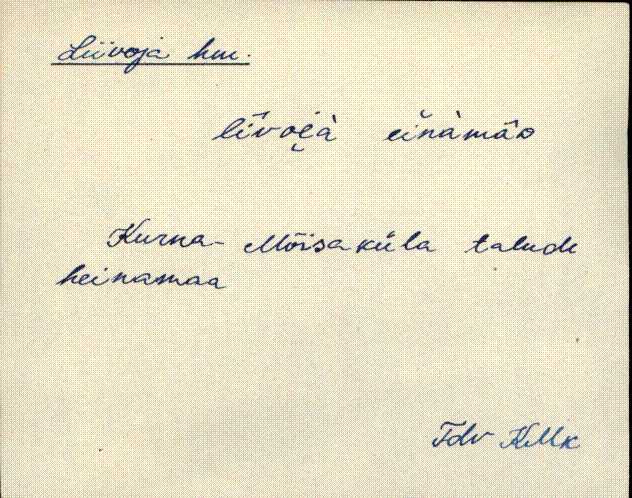 Liivoja hm.
līvoi̯à ei̯nàmāo
Kurna-Mõisaküla talude
heinamaa
Tdv KMk